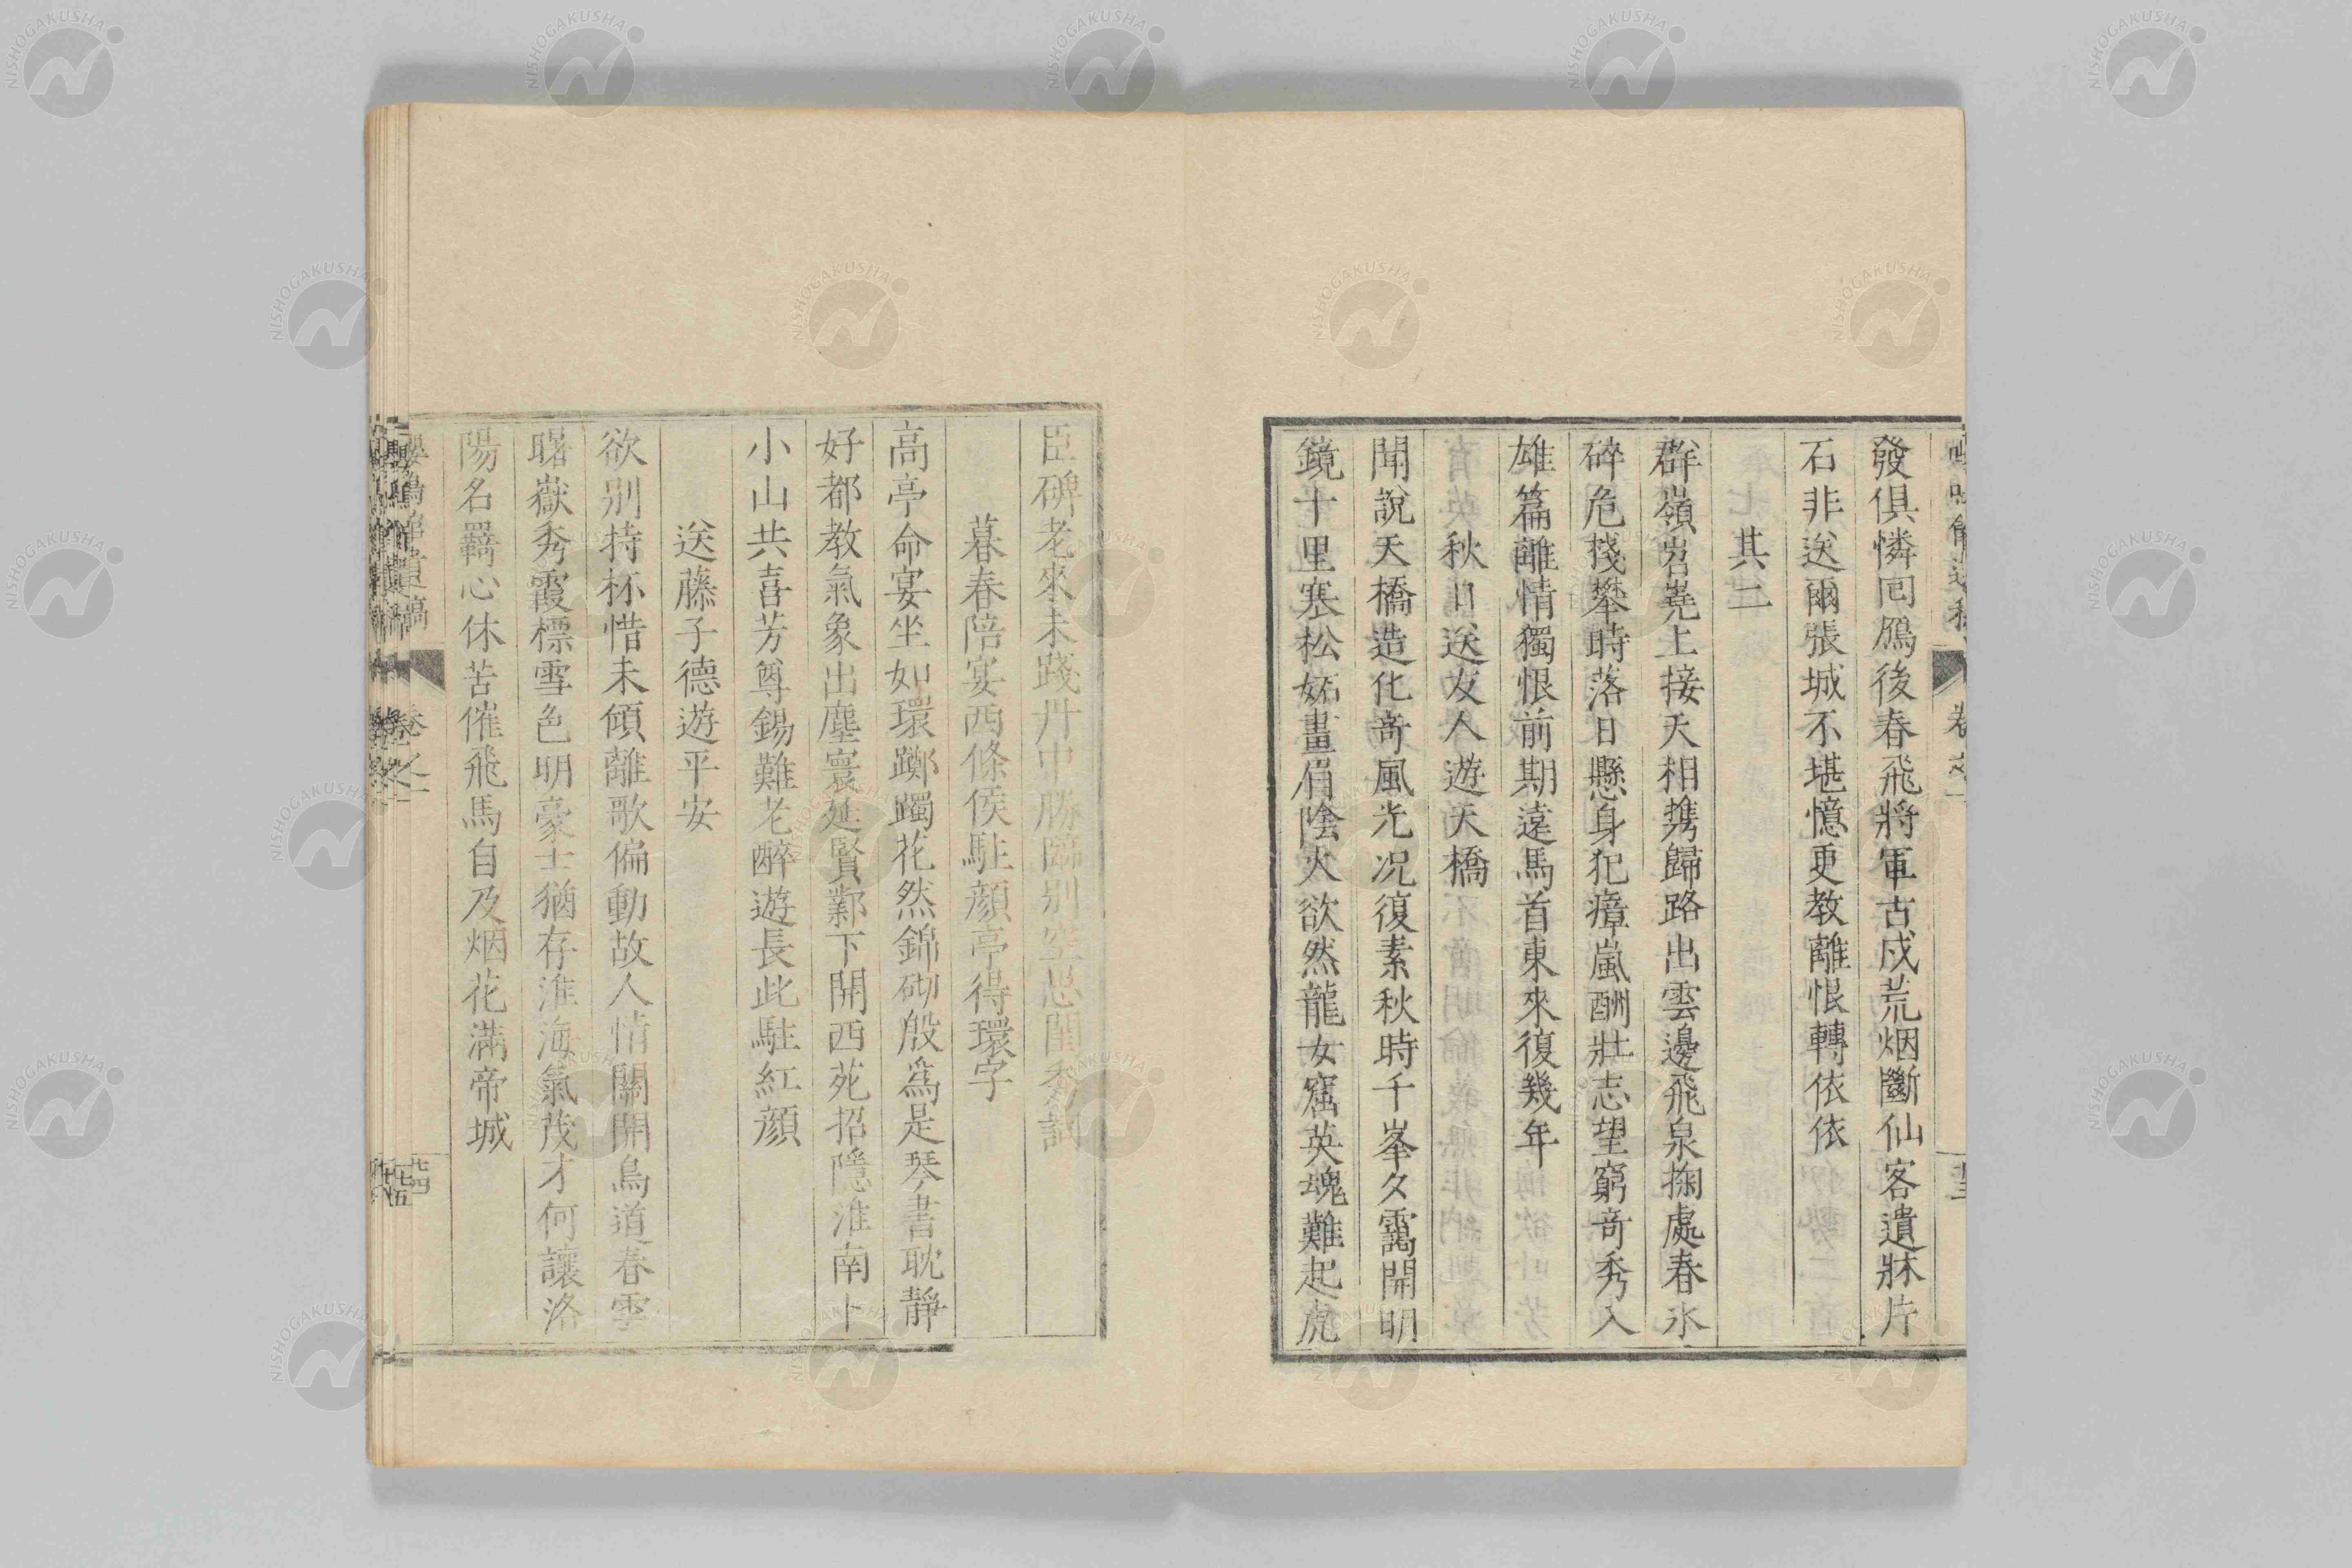 發俱憐囘鴈後春飛將軍古戍荒烟斷仙客遺牀片
石非送爾張城不堪憶更教離恨轉依依
其二
群嶺岧嶤上接天相携歸路出雲邊飛泉掬處春氷
碎危棧攀時落日懸身犯瘴嵐酬壯志望窮奇秀入
雄篇離情獨恨前期遠馬首東來復幾年
秋日送友人遊天橋
聞說天橋造化奇風光况復素秋時千峯夕靄開明
鏡十里寒松妬畫眉陰火欲然龍女窟英魂難起虎
臣碑老來未踐丹中勝臨別空思開秀詞
暮春陪宴西條侯駐顏亭得環字
高亭命宴坐如環躑躅花然錦砌殷爲是琴書耽靜
好都教氣象出塵寰延賢鄴下開西苑招隱淮南卜
小山共喜芳尊錫難老醉遊長此駐紅顏
送藤子德遊平安
欲別持杯惜未傾離歌偏動故人情關開鳥道春雲
曙嶽秀霞標雪色明豪士猶存淮海氣茂才何讓洛
陽名羇心休苦催飛馬自及烟花滿帝城
嚶鳴館遺稿 卷之二 七四
NISHOGAKUSHA